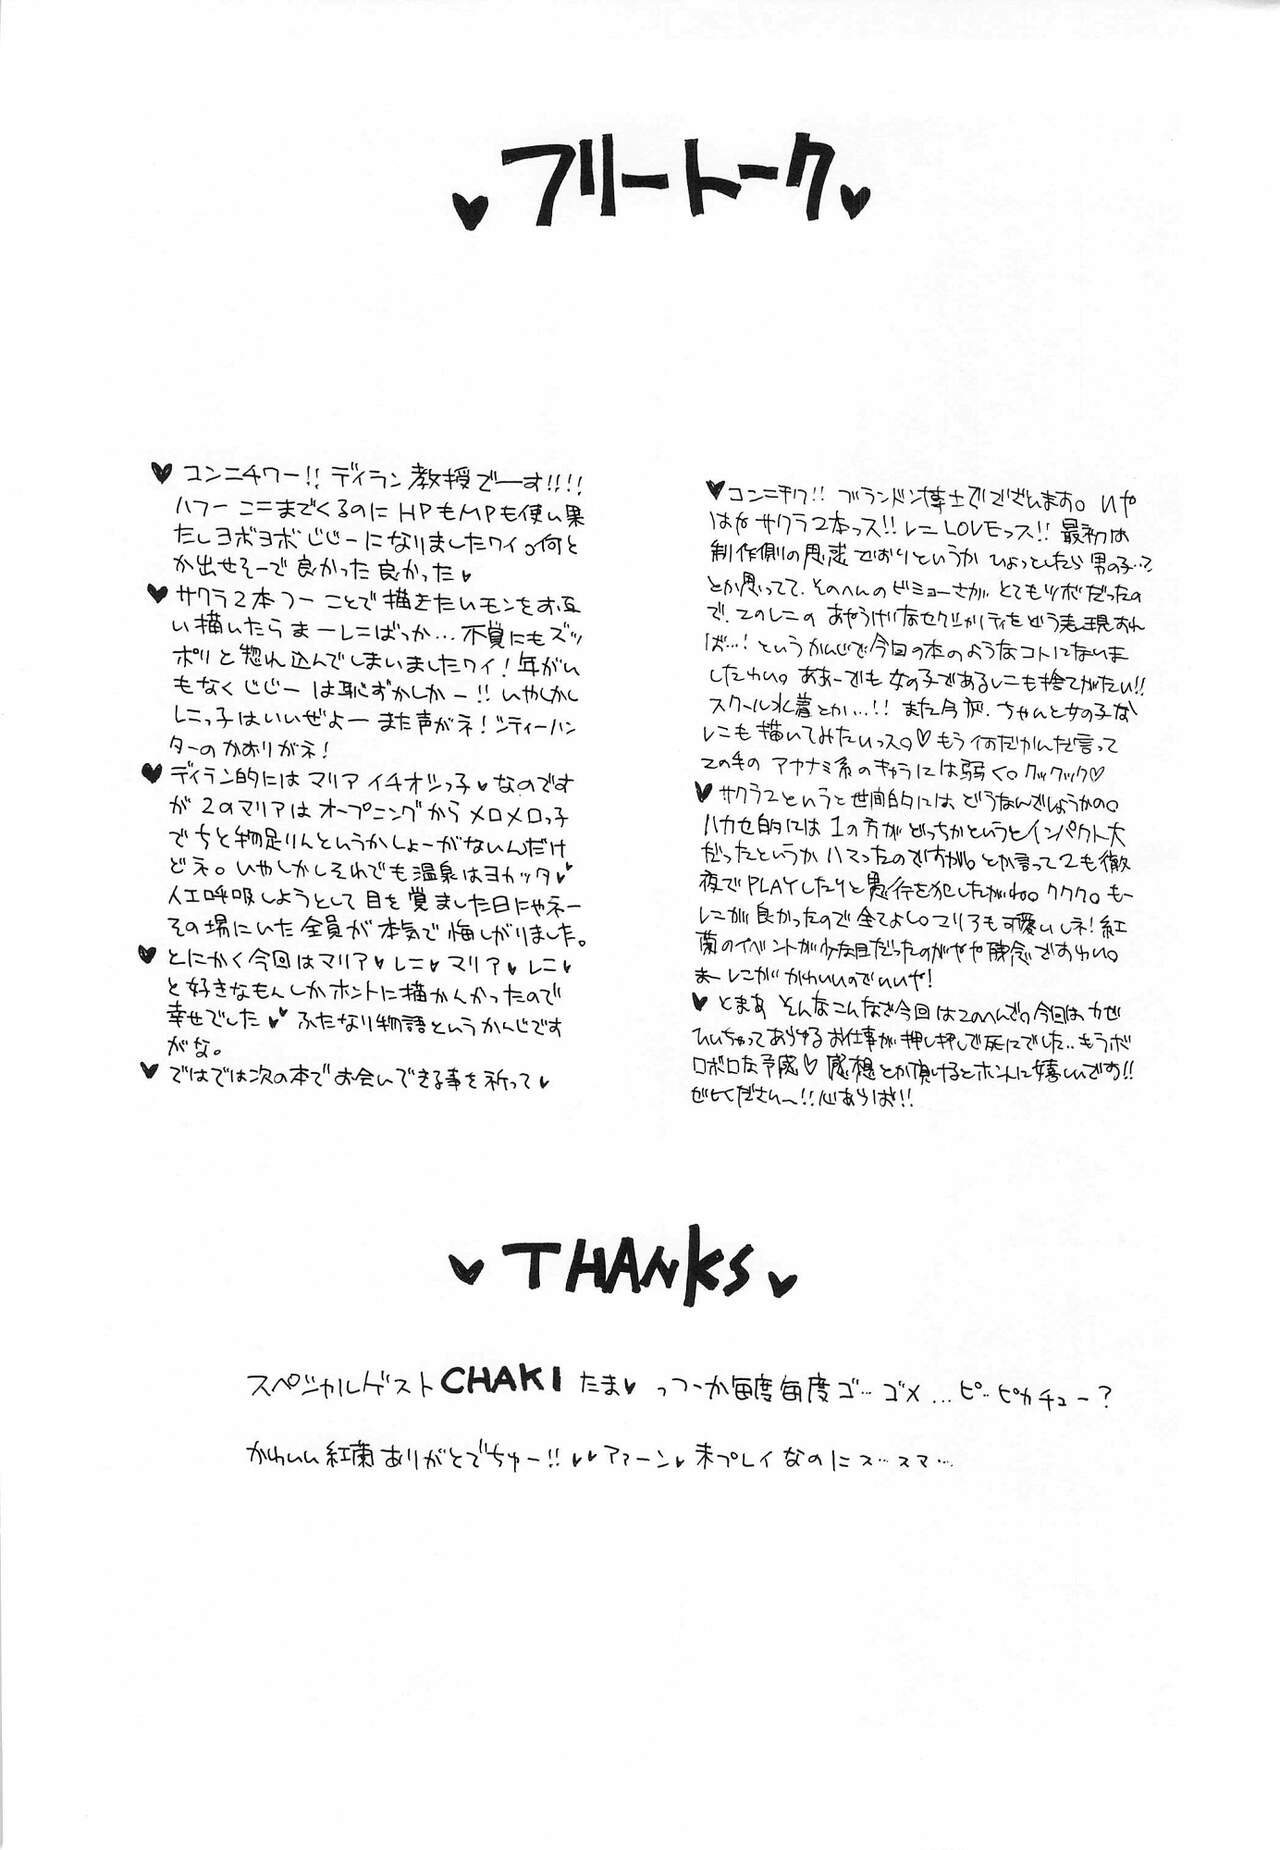 フリートーク
コンニチワー!! ディラン教授でーす!!!!
ハフー ここまでくるのに HPもMPも使い果
たしヨボヨボじじーになりましたワイ。何と
か出せそーで良かった良かった
サクラ2本つーことで描きたいモンをお互
い描いたら まーレニばっか…不覚にもズッ
ポリと惚れ込んでしまいましたワイ!年がい
もなくじじーは恥ずかしかー!!いやしかし
レニっ子はいいぜよー また声がネ!シティーハン
ターのかおりがネ!
ディラン的にはマリアイチオシっ子 なのです
が 2のマリアはオープニングからメロメロっ子
でちと物足りんというかしょーがないんだけ
どネ。いやしかしそれでも温泉はヨカッタ
人工呼吸しようとして目を覚ました日にゃネー
その場にいた全員が本気で悔しがりました。
とにかく今回はマリア レニ マリア レニ
と好きなもんしかホントに描かんかったので
幸せでした ふたなり物語というかんじです
がな。
ではでは次の本でお会いできる事を祈って
コンニチワ!! ブランドン博士でございます。いや
はやサクラ2本っス!!レニLOVEっス!! 最初は
制作側の思惑どおりというか ひょっとしたら男の子…?
とか思ってて、そのへんのビミョーさが、とてもツボだったの
で、このレニの あやうげなセクシャリティをどう表現すれ
ば…!というかんじで今回の本のようなコトにないま
したわい。ああーでも女の子であるレニも捨てがたい!!
スクール水着とか…!! また今度、ちゃんと女の子な
レニも描いてみたいっス。もう何だかんだ言って
この手の アヤナミ系のキャラには弱く。クックック
サクラ2というと世間的には、どうなんでしょうかの。
ハカセ的には1の方がどっちかというとインパクト大
だったというか ハマったのですが。とか言って2も徹
夜でPLAYしたりと愚行を犯したがね。ククク。もー
レニが良かったので全てよし。マリアも可愛いしネ!紅
蘭のイベントが少な目だったのがやや残念ですわい。
まーレニが かわいいのでいいや!
とまあ そんなこんなで今回はこのへんで。今回は、カゼ
ひいちゃってあらゆるお仕事が押し押しで死にでした..もうボ
ロボロな予感 感想とか頂けるとホントに嬉しいです!!
ぜひください〜!!心あらば!!
THANKS
スペシャルゲスト CHAKI たま っつーか毎度毎度ゴ…ゴメ…ピ…ピカチュー?
かわいい紅蘭ありがとでちゅー!! アァーン 未プレイなのにス…スマ…